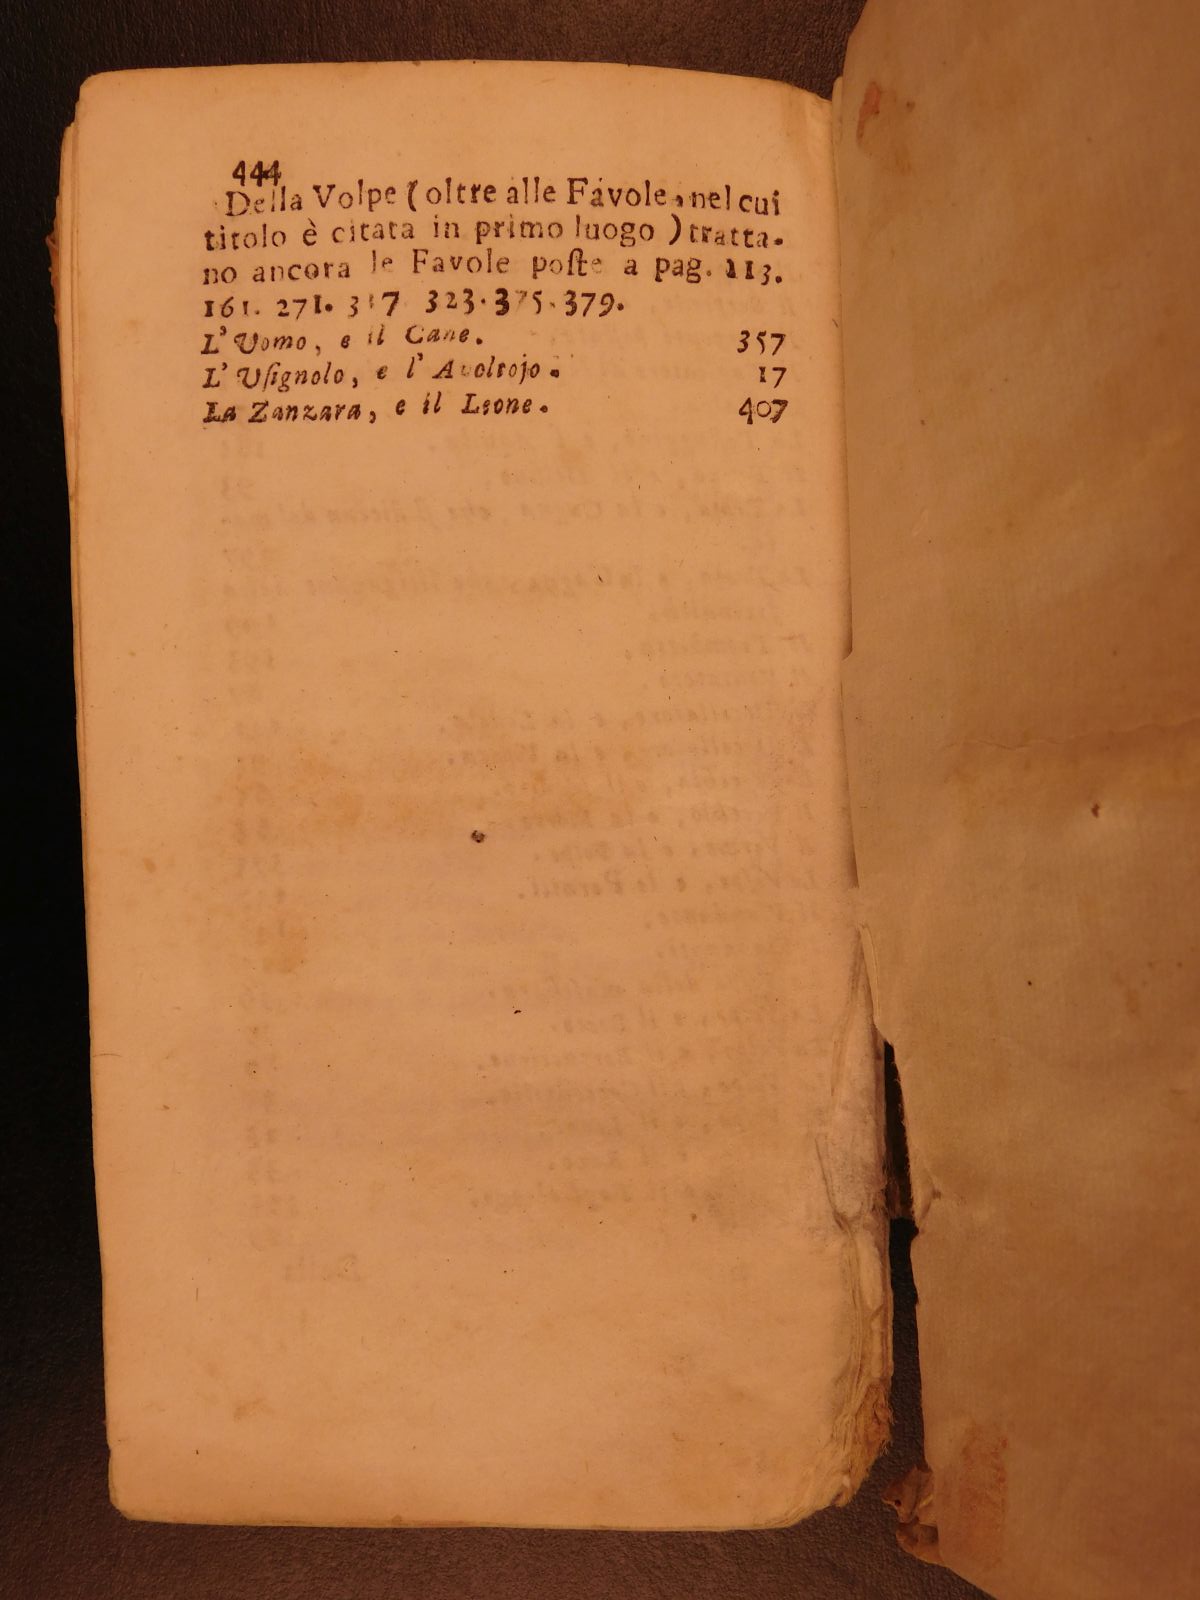 444
Della Volpe ( oltre alle Favole, nel cui
titolo è citata in primo luogo ) tratta-
no ancora le Favole poſte a pag. 113.
161. 271. 317 323. 375. 379.
L' Uomo, e il Cane. 357
L' Uſignolo, e l' Avoltojo. 17
La Zanzara, e il Leone. 407